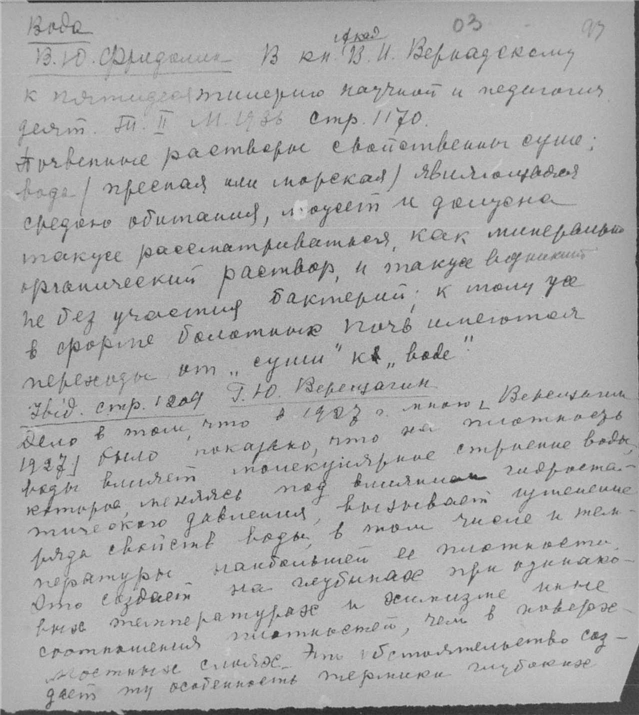 Вода
03
97
В. Ю. Фридолин В кн. Акад. В. И. Вернадскому
к пятидесятилетию научной и педагогич
деят. Т. II М. 1936 стр. 1170.
Почвенные растворы свойственны суше;
вода (пресная или морская) являющаяся
средою обитания, может и должна
также рассматриваться, как минерально
органический раствор, и также возникший
не без участия бактерий; к тому же
в форме болотных почв имеются
переходы от „суши" к „воде".
Ibid. стр. 1209 Г. Ю. Верещагин
Дело в том, что в 1927 г. мною [Верещагин
1927] было показано, что на плотность
воды влияет молекулярное строение воды,
которое, меняясь под влиянием гидроста-
тического давления, вызывает изменение
ряда свойств воды, в том числе и тем-
пературы наибольшей ее плотности.
Это создает на глубинах при одинако-
вых температурах и химизме иные
соотношения плотностей, чем в поверх-
ностных слоях. Это обстоятельство соз-
дает ту особенность термики глубоких